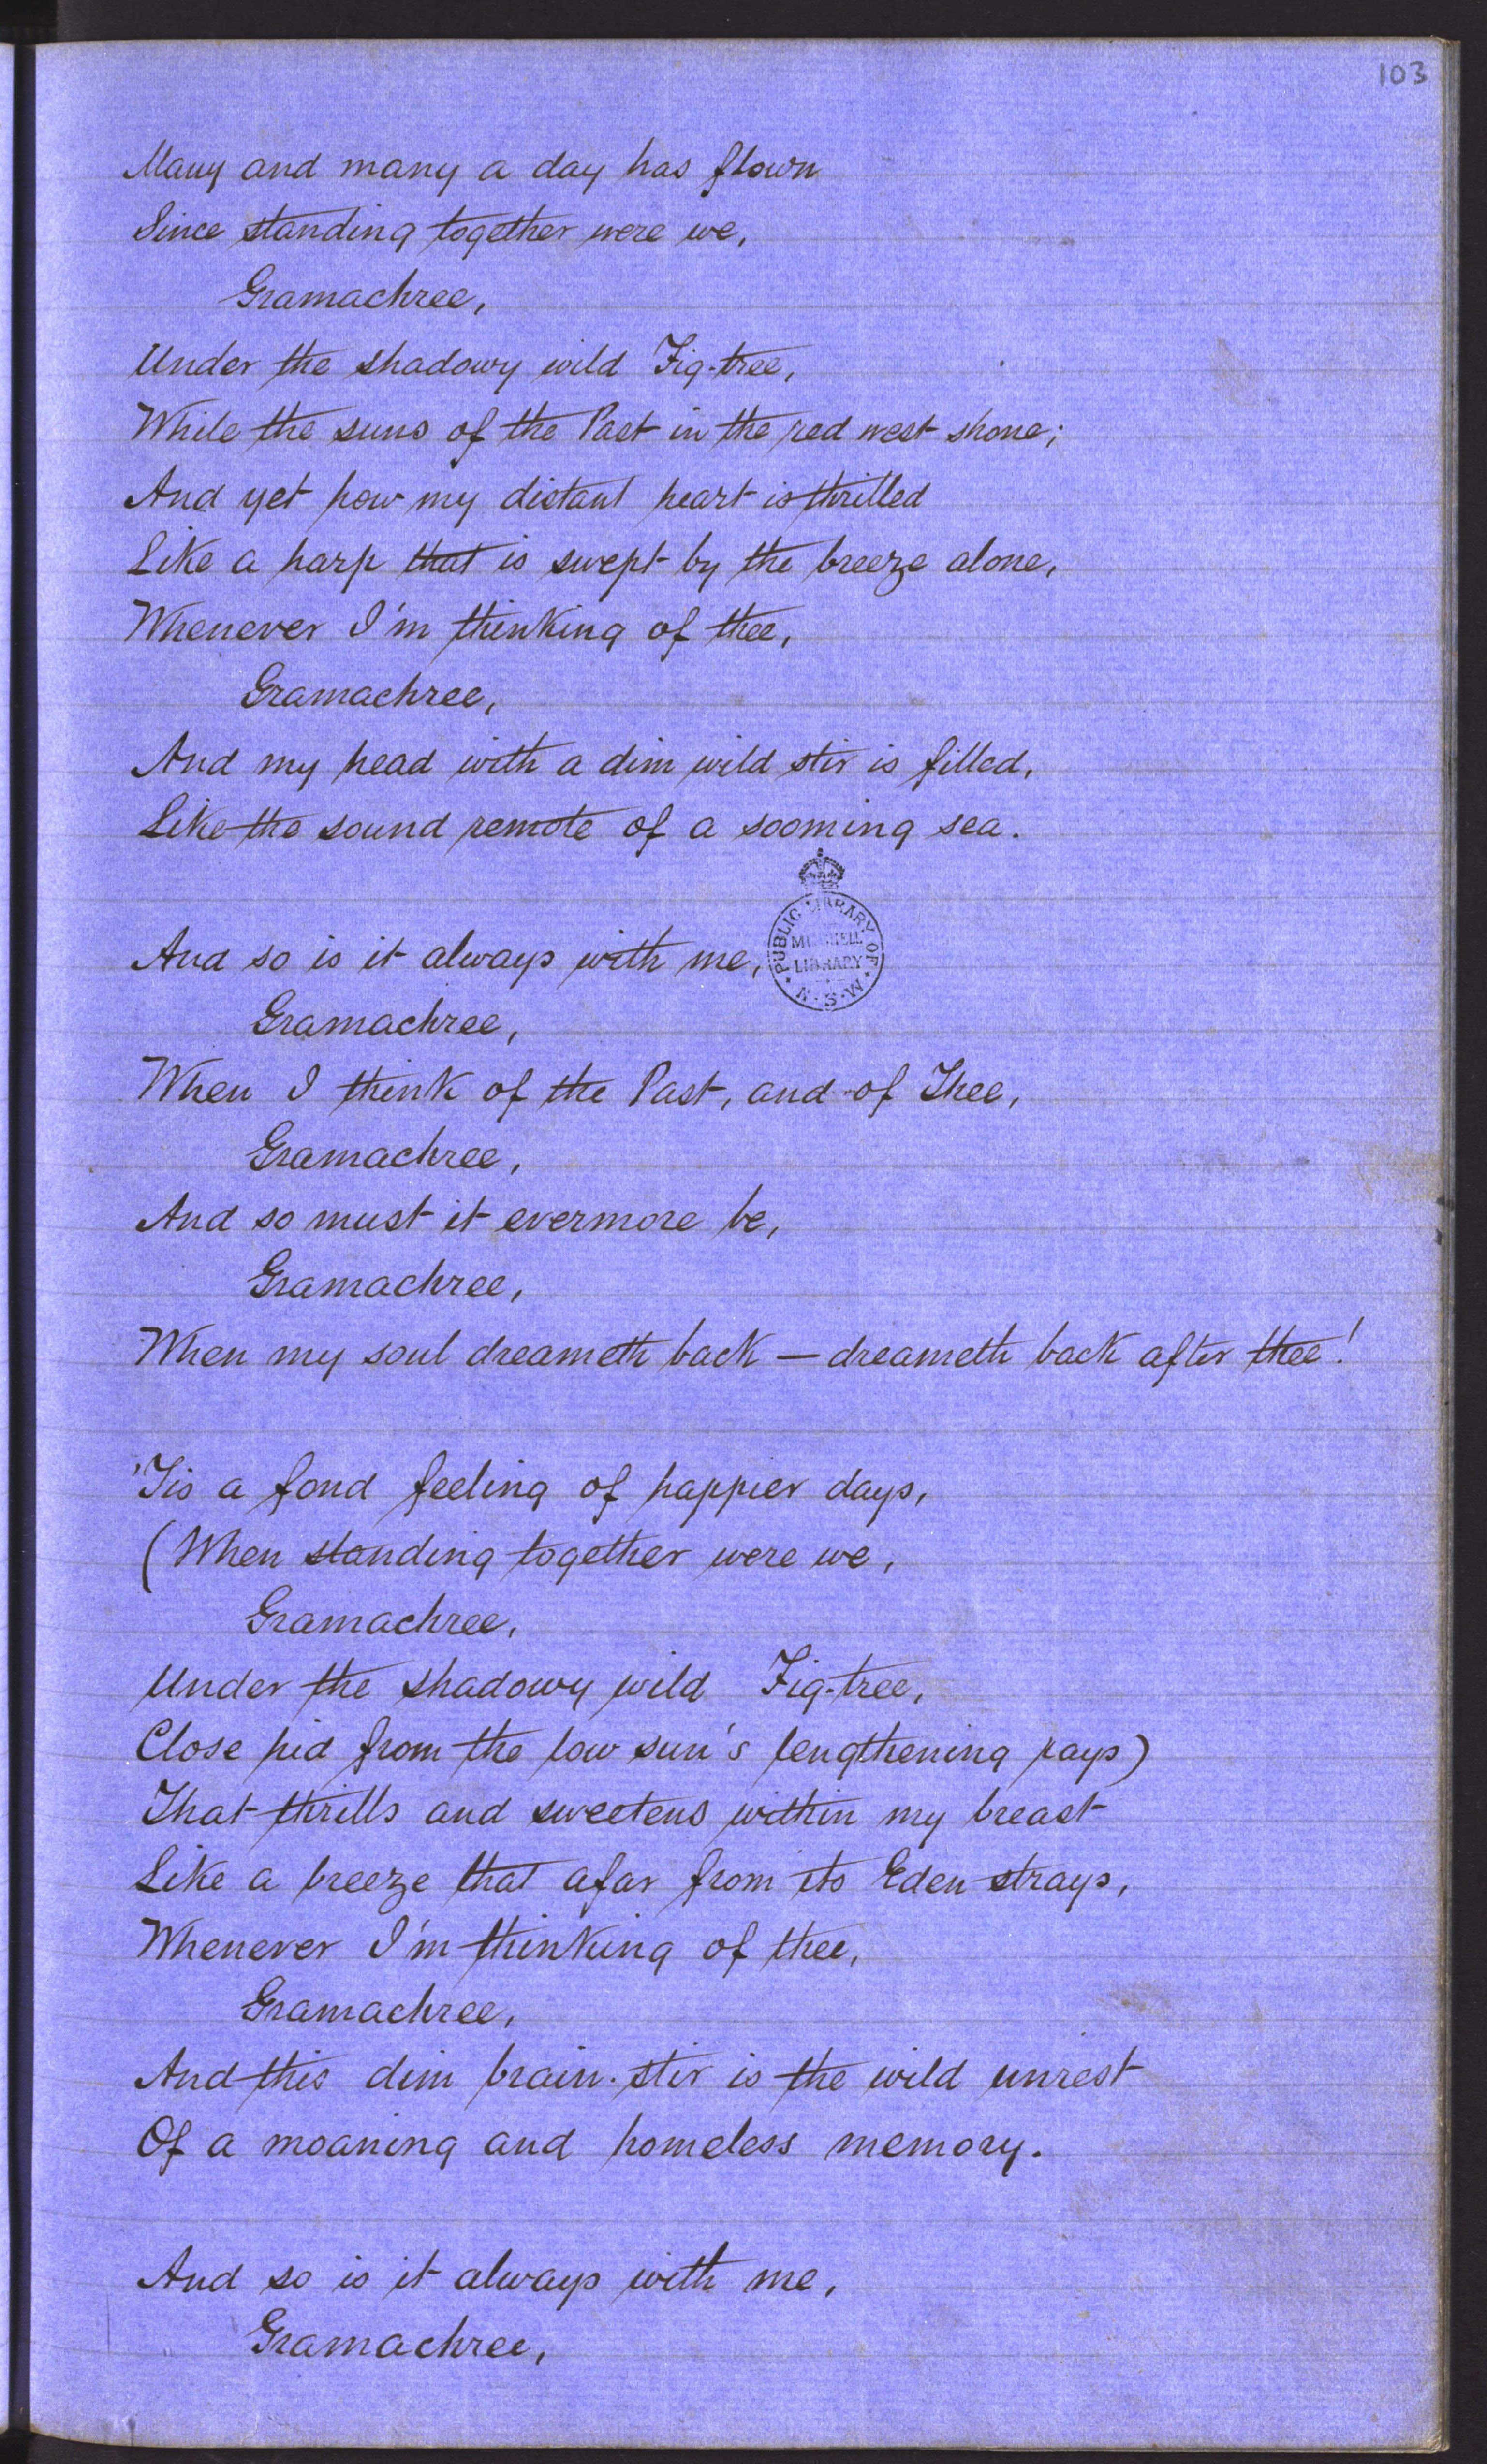 103
Many and many a day has flown
Since standing together were we,
Gramachree,
Under the shadowy wild Fig-tree,
While the suns of the Past in the red west shone;
And yet how my distant heart is thrilled
Like a harp that is swept by the breeze alone,
Whenever I'm thinking of thee,
Gramachree,
And my head with a dim wild stir is filled,
Like the sound remote of a sooming sea.
PUBLIC LIBRARY OF N.S.W.
MITCHELL
LIBRARY
And so is it always with me,
Gramachree,
When I think of the Past, and of Thee,
Gramachree,
And so must it evermore be,
Gramachree,
When my soul dreameth back — dreameth back after thee!
'Tis a fond feeling of happier days,
(When standing together were we,
Gramachree,
Under the shadowy wild Fig-tree,
Close hid from the low sun's lengthening rays)
That thrills and sweetens within my breast
Like a breeze that afar from its Eden strays,
Whenever I'm thinking of thee,
Gramachree,
And this dim brain-stir is the wild unrest
Of a moaning and homeless memory.
And so is it always with me,
Gramachree,